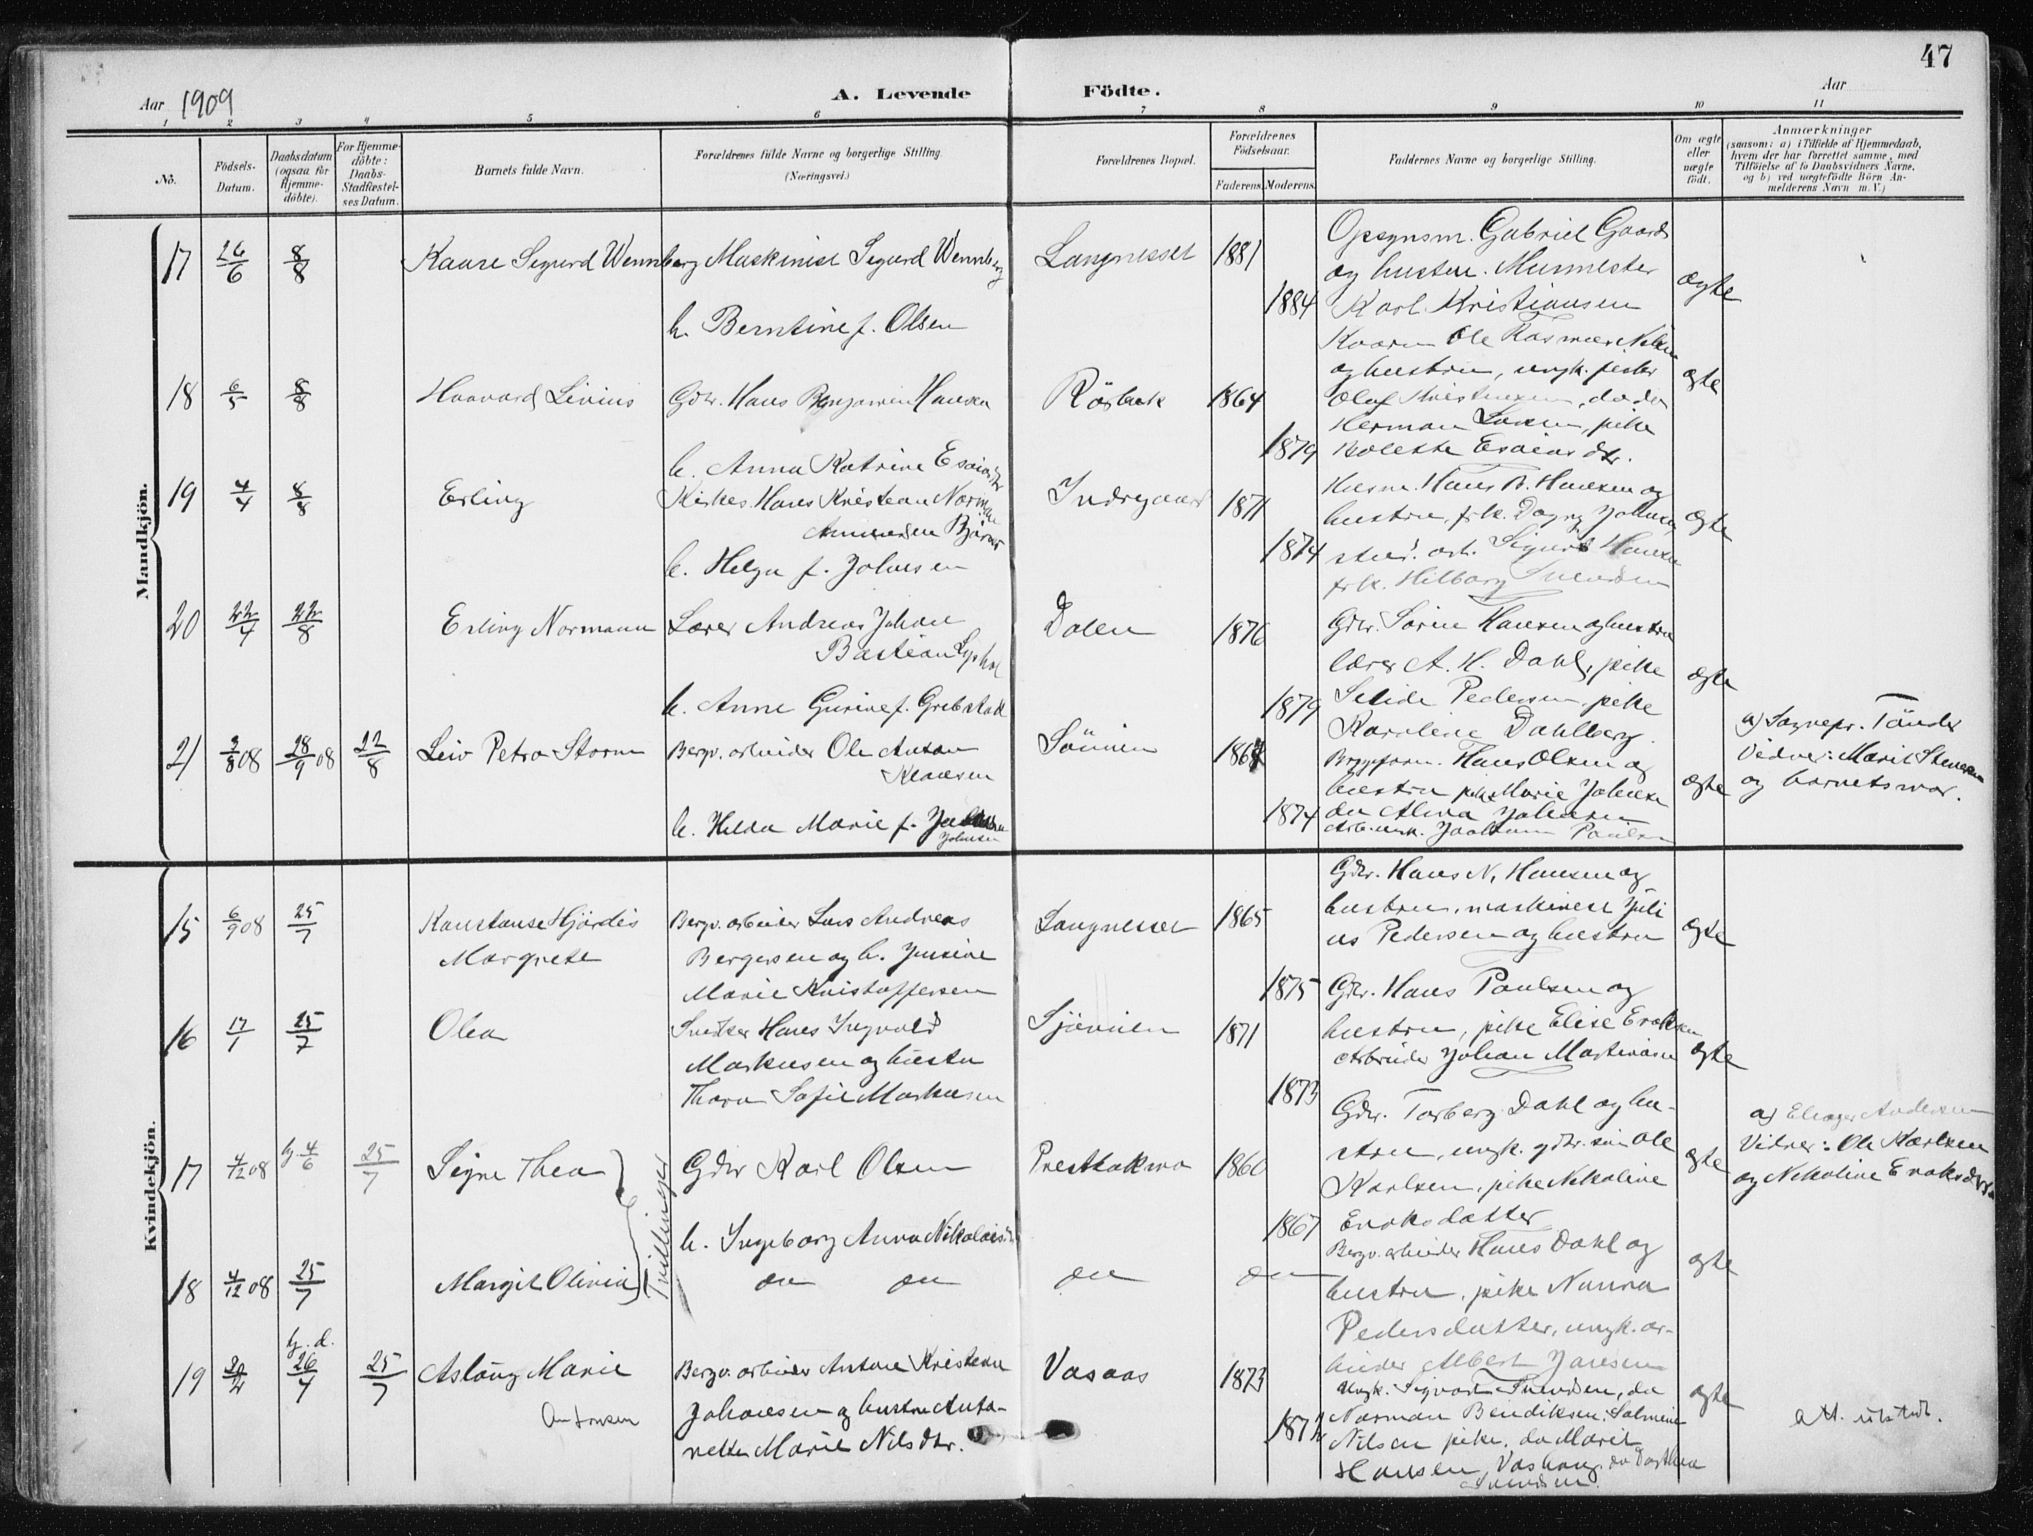 47
Aar 1909
A. Levende Födte.
Aar
1 2 3 4 5 6 7 8 9 10 11
No.
Födsels-Datum.
Daabsdatum (ogsaa for Hjemme-döbte).
For Hjemme-döbte: Daabs-Stadfæstel-ses Datum.
Barnets fulde Navn.
Forældrenes fulde Navne og borgerlige Stilling.
(Næringsvei.)
Forældrenes Bopæl.
Forældrenes Födselsaar.
Faderens. Moderens.
Faddernes Navne og borgerlige Stilling.
Om ægte eller uægte födt.
Anmærkninger
(saasom: a) i Tilfælde af Hjemmedaab,
hvem der har forrettet samme, med
Tilföielse af to Daabsvidners Navne,
og b) ved uægtefödte Börn An-
melderens Navn m. V.)
Mandkjön.
17 26/6 8/8 Kaare Sigurd Wennberg Maskinist Sigurd Wennberg Langnesset 1881
h. Berntine f. Olsen 1884
Opsynsm. Gabriel Gaard
og hustru. Murmester
Karl Kristiansen
ægte
18 6/5 8/8 Haavard Livius Gdbr. Hans Benjamin Hansen Rörbæk 1864
h. Anna Katrine Esaiasdtr 1879
Kaarn Ole Rasmus Nilsen
og hustru, ungk. fisker
Olaf Kristensen, do do
Herman Larsen, pike
Bolette Esaiasdtr.
ægte
19 4/4 8/8 Erling Kirkes. Hans Kristian Norman
Amundsen Björnö
h. Helga f. Johnsen
Indregaard 1871
1874
Husm. Hans B. Hansen og
hustru, frk. Dagny Johnsen
stud. art. Sigurd Hansen
frk. Hilborg Svendsen
ægte
20 22/4 22/8 Erling Normann Lærer Andreas Johan
Bastian
h. Anne Gurine f. Grebstad
Dalen 1876
1879
Gdbr. Sören Hansen og hustru
lærer A. H. Dahl, pike
Selide Pedersen, pike
Karoline Dahlberg.
ægte
21 2/8 08 28/9 08 22/8 Leiv Petro Storm Bergv. arbeider Ole Anton
Klausen
h. Hilda Marie f.
Johnsen
Sövien 1868
1874
Bryggeform. Hans Olsen og
hustru pike Marie Johnsen
do Alma Johnsen
Arb. ungk. Joakim Paulsen
ægte
a) Sognepr. Tönder
Vidner: Marit Stenersen
og barnets mor.
Kvindekjön.
15 6/9 08 25/7 Konstanse Hjördis
Margrete
Bergv. arbeider Lars Andreas
Bergersen og h. Jensine
Marie Kristoffersen
Langnesset 1865
1875
Gdbr. Hans N. Hansen og
hustru, maskinist Juli
us Pedersen og hustru
ægte
16 17/1 25/7 Olea
Snedker Hans Ingvald
Markusen og hustru
Thora Sofie Markusen
Sjövien 1871
1873
Gdbr. Hans Paulsen og
hustru, pike Elise Enoksen
Arbeider Johan Martinsen
ægte
17 4/12 08 hj. 4/6 25/7 Signe Thea
Gdbr Karl Olsen
h. Ingeborg Anna Nikolaisdtr
Prestbakmo 1860
1867
Gdbr. Torberg Dahl og hu-
stru, ungk. gdbr. sön Ole
Karlsen, pike Nikoline
Enoksdatter
ægte
a) Andersen
Vidner: Ole Karlsen
og Nikoline Enoksdatter
Tvillinger
18 4/12 08 25/7 Margit Olivia do do do do
Bergv. arbeider Hans Dahl og
hustru, pike Nanna
Pedersdatter, ungk. ar-
beider Albert Jansen
ægte
19 20/2 hj. d. 26/4 25/7 Aslaug Marie
Antonsen
Bergv. arbeider Anton Kristian
Johansen og hustru Anto-
nette Marie Nilsdtr.
Vasaas 1873
1872
Ungk. Sigvart Svendsen, do
Norman Bendiksen, Salmine
Nilsen pike, do Marit
Hansen, Vashaug, do Dorthea
Svendsen.
ægte
att. utstedt.